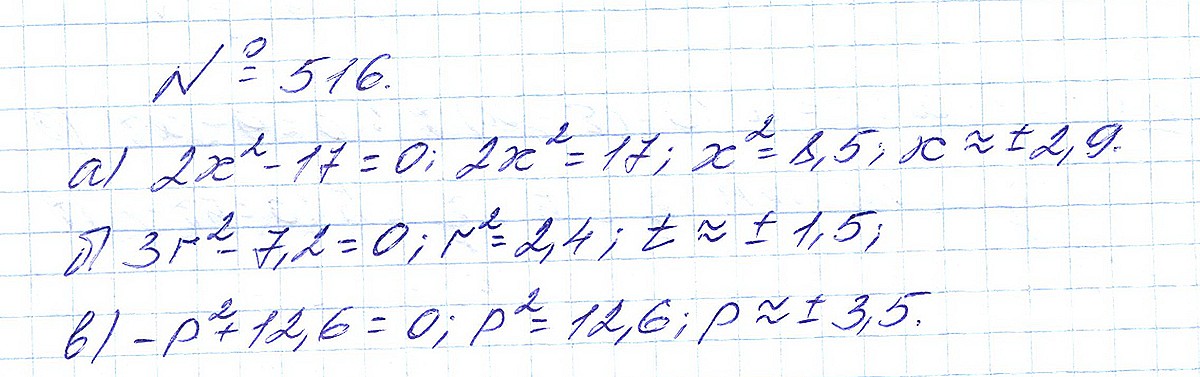 № 516.
а) 2x² - 17 = 0; 2x² = 17; x² = 8,5; x ≈ ± 2,9.
б) 3r² - 7,2 = 0; r² = 2,4; t ≈ ± 1,5;
в) -p² + 12,6 = 0; p² = 12,6; p ≈ ± 3,5.